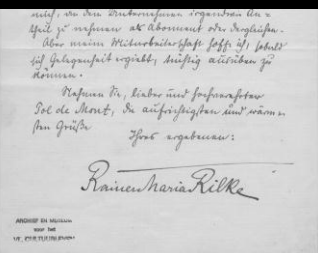 mich, an dem Unternehmen irgendwie An=
theil zu nehmen als Abonnent oder dergleichen.
Aber meine Mitarbeiterschaft hoff ich, sobald
sich Gelegenheit ergiebt, ausüben zu
können.
Nehmen Sie, lieber und hochverehrter
Pol de Mont, die aufrichtigsten und wärm=
sten Grüße
Ihres ergebenen:
Rainer Maria Rilke
ARCHIEF EN MUSEUM
voor het
VL. CULTUURLEVEN